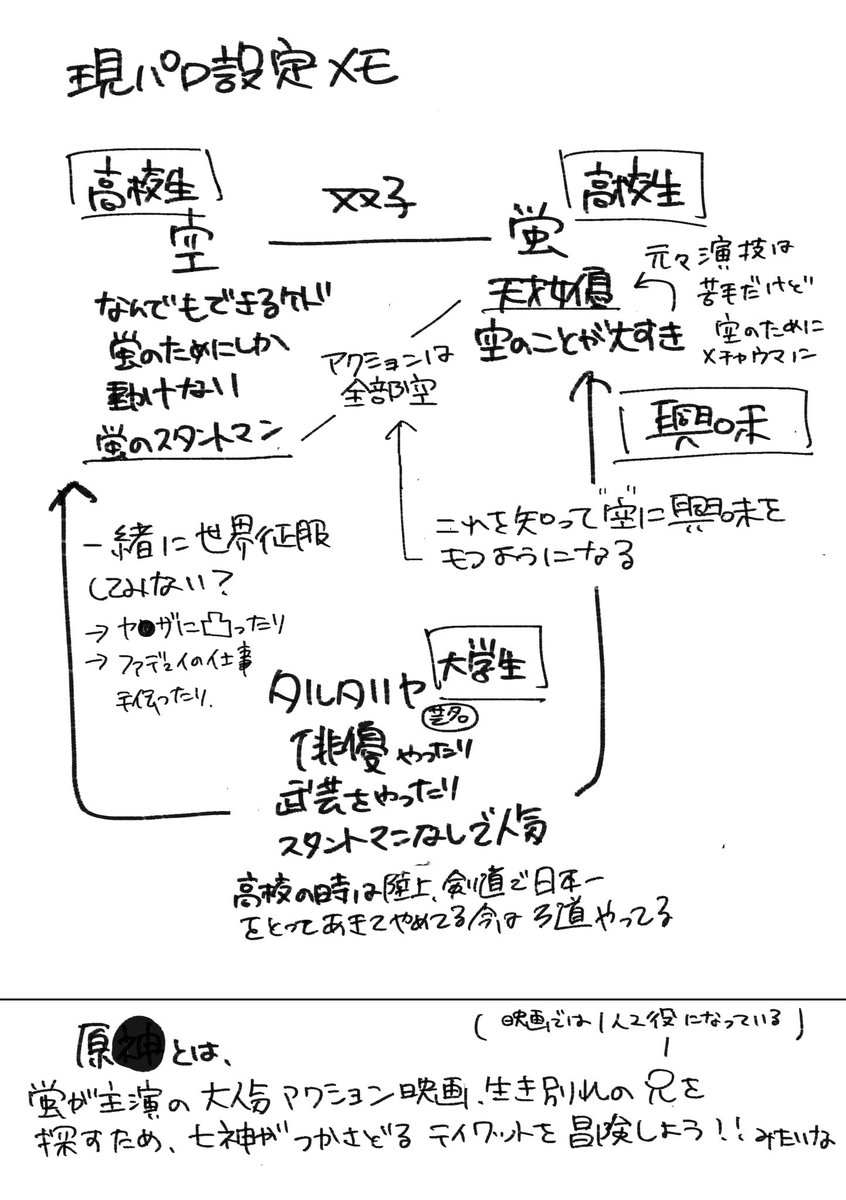 現パロ設定メモ
高校生
双子
高校生
空
蛍
なんでもできるケド
蛍のためにしか
動けない
蛍のスタントマン
アクションは
全部空
天才女優
空のことが大すき
元々演技は
苦手だけど
空のために
メチャウマに
興味
これを知って"空"に興味を
もつようになる
一緒に世界征服
してみない?
→ヤ●ザに凸ったり
→ファデュイの仕事
手伝ったり.
大学生
タルタリヤ
芸名
俳優やったり
武芸をやったり
スタントマンなしで人気
高校の時は陸上、剣道で日本一
をとってあきてやめてる今は弓道やってる
(映画では1人2役になっている)
原神とは、
蛍が主演の大人気アクション映画、生き別れの兄を
探すため、七神がつかさどるテイワットを冒険しよう!!みたいな